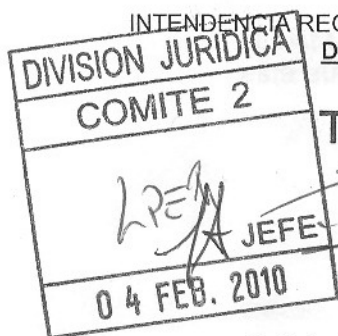 INTENDENCIA REG
DIVISION JURIDICA
COMITE 2
JEFE
0 4 FEB. 2010